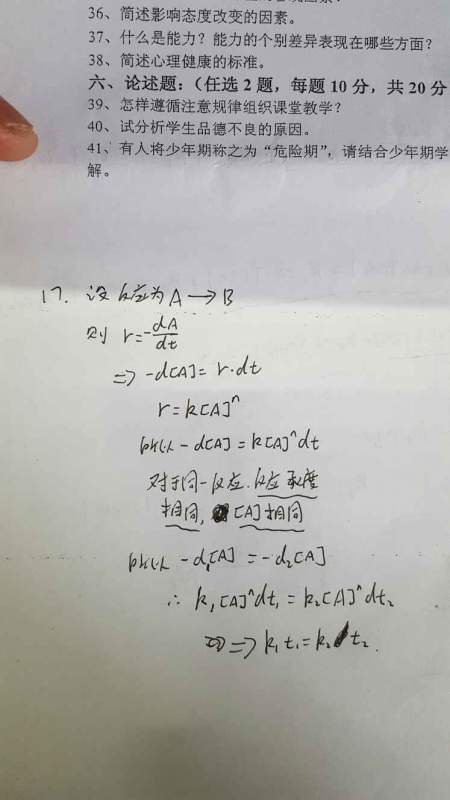 36、简述影响态度改变的因素。
37、什么是能力？能力的个别差异表现在哪些方面？
38、简述心理健康的标准。
六、论述题：（任选 2 题，每题 10 分，共 20 分
39、怎样遵循注意规律组织课堂教学？
40、试分析学生品德不良的原因。
41、有人将少年期称之为“危险期”，请结合少年期学
解。
17. 设反应为 A → B
则 r = -dA/dt
⇒ -d[A] = r·dt
r = k[A]^n
所以 -d[A] = k[A]^n dt
对于同一反应. 反应程度
相同, [A]相同
所以 -d₁[A] = -d₂[A]
∴ k₁[A]^n dt₁ = k₂[A]^n dt₂
⇒ k₁t₁ = k₂t₂.